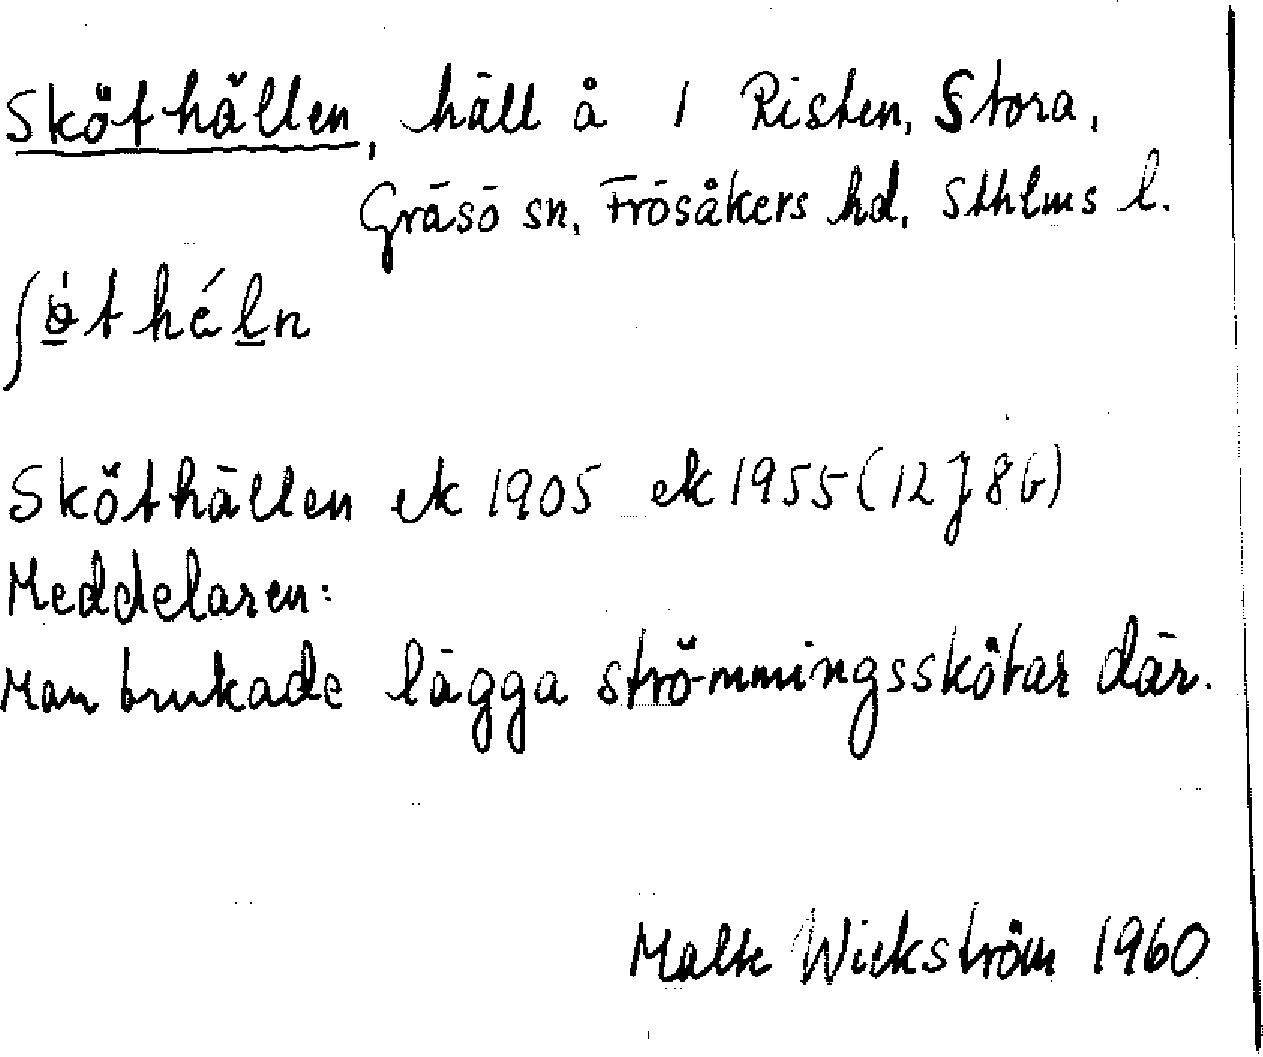 Sköthällen, häll å 1 Risten, Stora,
Gräsö sn, Frösåkers hd, Sthlms l.
Sköthällen ek 1905 ek 1955 (12 J 8b)
Meddelaren:
Man brukade lägga strömmingsskötar där.
Malte Wickström 1960